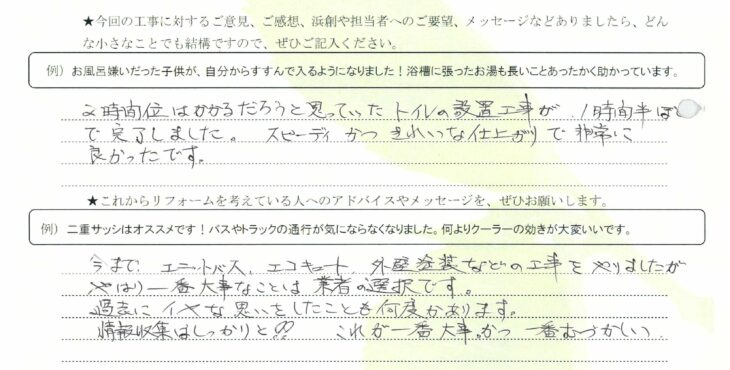 ★今回の工事に対するご意見、ご感想、浜創や担当者へのご要望、メッセージなどありましたら、どん
な小さなことでも結構ですので、ぜひご記入ください。
例）お風呂嫌いだった子供が、自分からすすんで入るようになりました！浴槽に張ったお湯も長いことあったかく助かっています。
2時間位はかかるだろうと思っていた トイレの設置工事が、1時間半ほど
で完了しました。 スピーディ かつ きれいな仕上がりで 非常に
良かったです。
★これからリフォームを考えている人へのアドバイスやメッセージを、ぜひお願いします。
例）二重サッシはオススメです！バスやトラックの通行が気にならなくなりました。何よりクーラーの効きが大変いいです。
今まで、ユニットバス、エコキュート、外壁塗装などの工事をやりましたが
やはり一番大事なことは業者の選択です。
過去にイヤな思いをしたことも何度かあります。
情報収集はしっかりと!! これが一番大事かつ一番むづかしい。